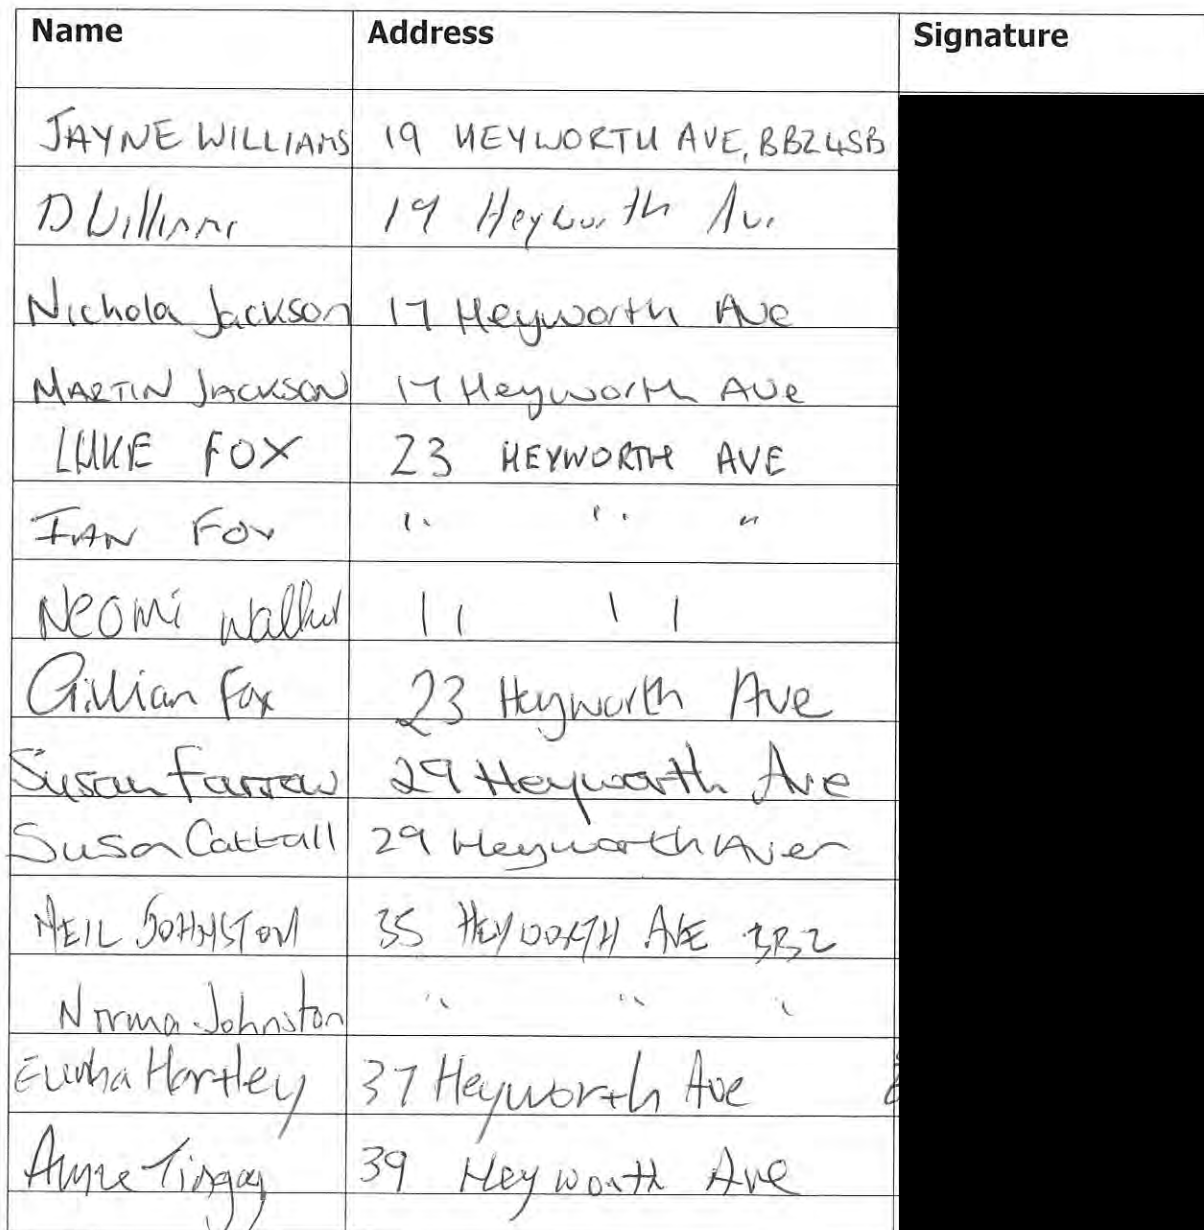 Name Address Signature
JAYNE WILLIAMS 19 HEYWORTH AVE, BB2 4SB
D. Williams 19 Heyworth Ave
Nichola Jackson 17 Heyworth Ave
MARTIN JACKSON 17 Heyworth Ave
LUKE FOX 23 HEYWORTH AVE
IAN FOX " " "
Neomi Walker 11 11
Gillian Fox 23 Heyworth Ave
Susan Farrow 29 Heyworth Ave
Susan Cattall 29 Heyworth Aven
NEIL JOHNSTON 35 HEYWORTH AVE BB2
Norma Johnston " " "
Hartley 37 Heyworth Ave
Tingay 39 Heyworth Ave